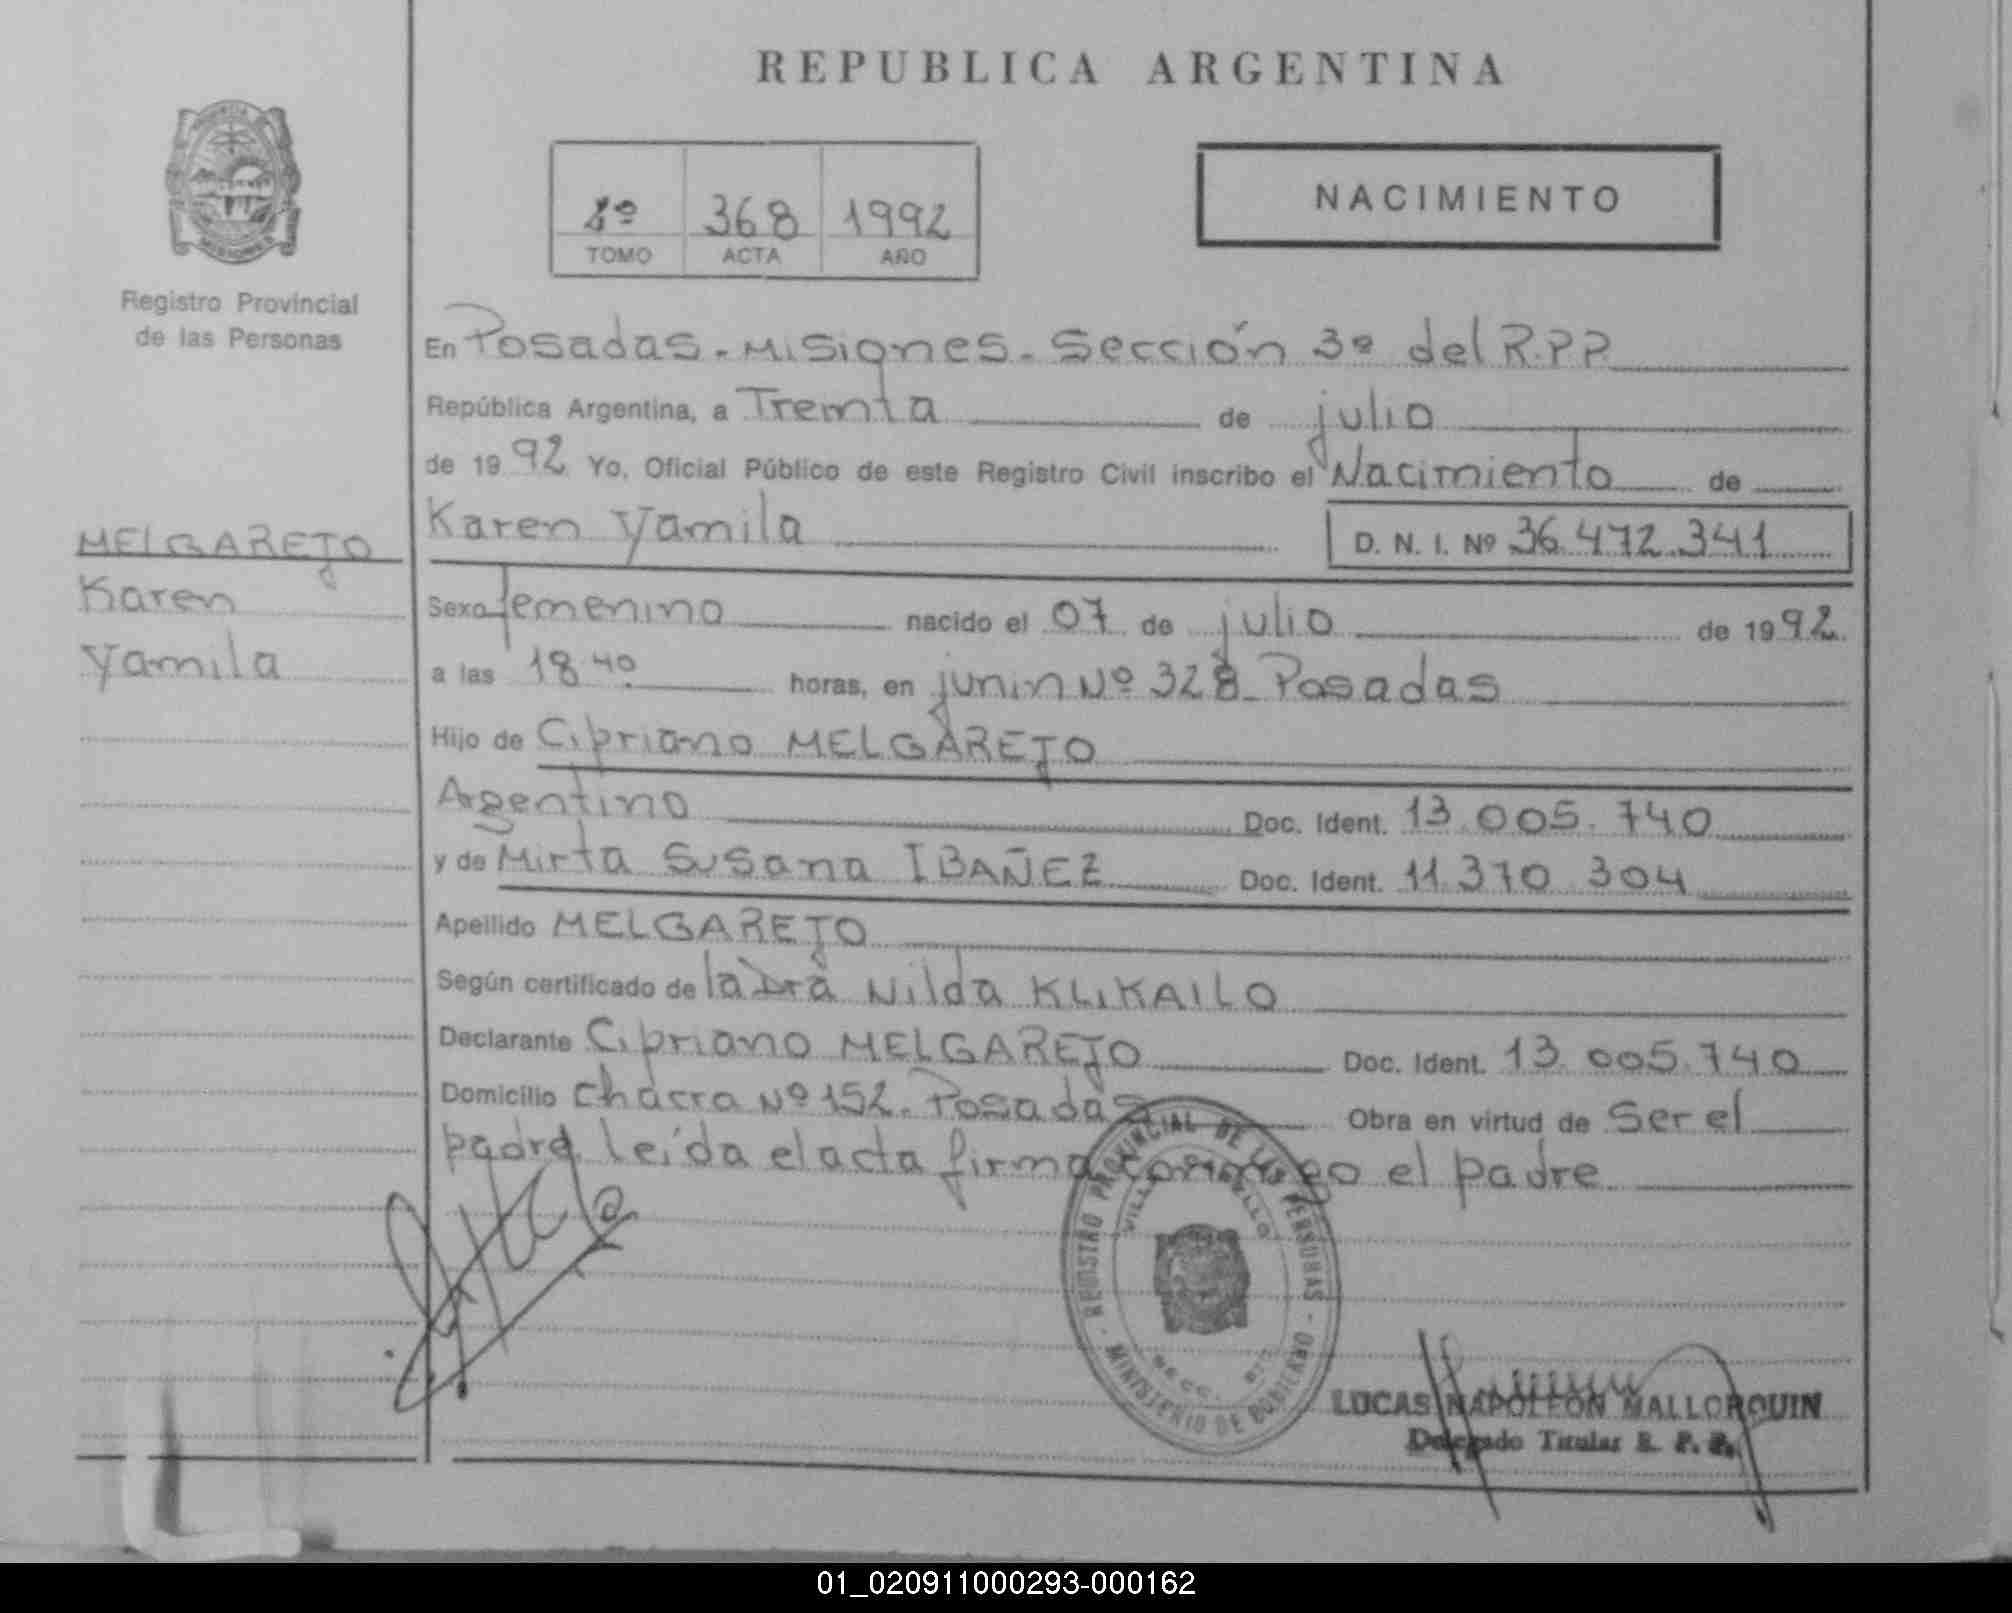 REPUBLICA ARGENTINA
NACIMIENTO
368 1992
TOMO ACTA AÑO
Registro Provincial
de las Personas
En Posadas - Misiones - Sección 3º del R.P.P
República Argentina, a Treinta de julio
de 1992 Yo, Oficial Público de este Registro Civil inscribo el Nacimiento de
Karen Yamila D. N. I. Nº 36.472.341
MELGAREJO
Karen
Yamila
Sexo femenino nacido el 07 de julio de 1992
a las 18 40 horas, en junin Nº 328 - Posadas
Hijo de Cipriano MELGAREJO
Argentino Doc. Ident. 13.005.740
y de Mirta Susana IBAÑEZ Doc. Ident. 11.370 304
Apellido MELGAREJO
Según certificado de la Dra Nilda KLIKAILO
Declarante Cipriano MELGAREJO Doc. Ident. 13.005.740
Domicilio chacra Nº 152. Posadas Obra en virtud de Ser el
padre. leída el acta firma conmigo el padre
REGISTRO PROVINCIAL DE LAS PERSONAS - MINISTERIO DE GOBIERNO -
LUCAS NAPOLEON MALLORQUIN
Delegado Titular R. P. P.
01_020911000293-000162